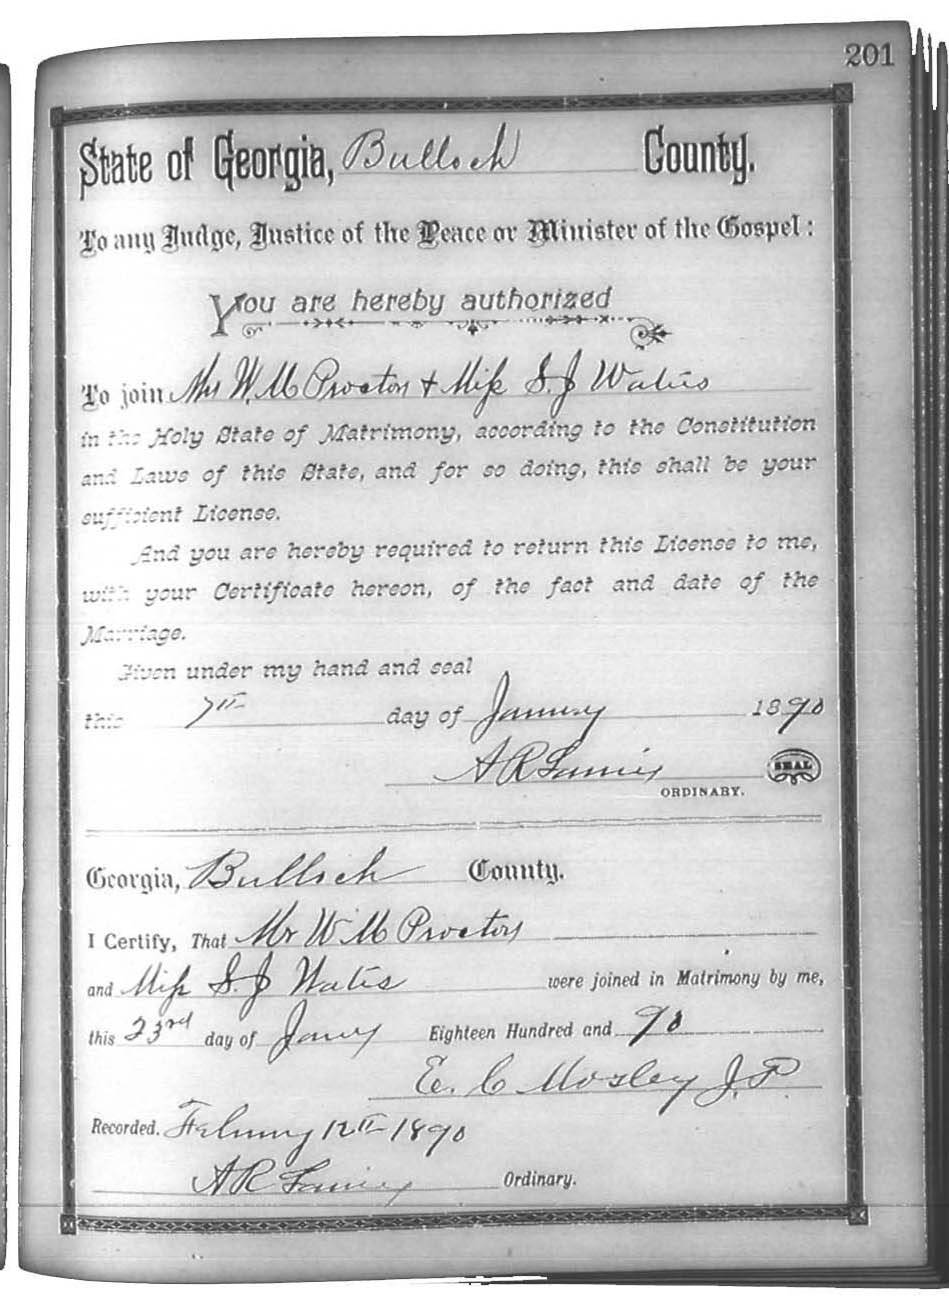 201
State of Georgia, Bulloch County.
To any Judge, Justice of the Peace or Minister of the Gospel:
You are hereby authorized
To join Mr W. M Proctor + Miss S J Waters
in the Holy State of Matrimony, according to the Constitution
and Laws of this State, and for so doing, this shall be your
sufficient License.
And you are hereby required to return this License to me,
with your Certificate hereon, of the fact and date of the
Marriage.
Given under my hand and seal
this 7th day of January 1890
A R Lanier SEAL
ORDINARY.
Georgia, Bulloch County.
I Certify, That Mr W M Proctor
and Miss S. J Waters were joined in Matrimony by me,
this 23rd day of Jany Eighteen Hundred and 90
E. C Mosley J. P
Recorded. February 12th 1890
A R Lanier Ordinary.